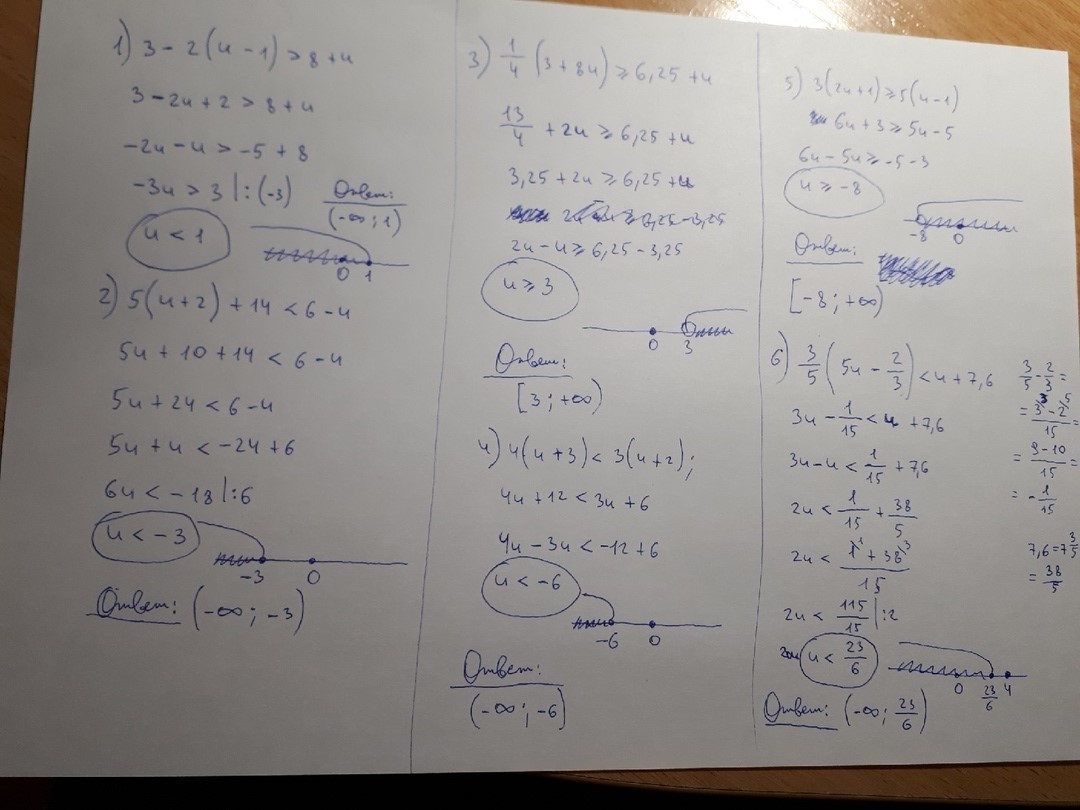 1) 3 - 2(u - 1) > 8 + u
3 - 2u + 2 > 8 + u
-2u - u > -5 + 8
-3u > 3 |:(-3)
Ответ:
(-∞; 1)
u < 1
0 1
2) 5(u + 2) + 14 < 6 - u
5u + 10 + 14 < 6 - u
5u + 24 < 6 - u
5u + u < -24 + 6
6u < -18 |:6
u < -3
-3 0
Ответ: (-∞; -3)
3) 1/4 (3 + 8u) ≥ 6,25 + u
13/4 + 2u ≥ 6,25 + u
3,25 + 2u ≥ 6,25 + u
2u - u ≥ 6,25 - 3,25
u ≥ 3
0 3
Ответ:
[3; +∞)
4) 4(u + 3) < 3(u + 2);
4u + 12 < 3u + 6
4u - 3u < -12 + 6
u < -6
-6 0
Ответ:
(-∞; -6)
5) 3(2u + 1) ≥ 5(u - 1)
6u + 3 ≥ 5u - 5
6u - 5u ≥ -5 - 3
u ≥ -8
-8 0
Ответ:
[-8; +∞)
6) 3/5 (5u - 2/3) < u + 7,6
3u - 1/15 < u + 7,6
3u - u < 1/15 + 7,6
2u < 1/15 + 38/5
2u < (1^1 + 38^3)/15
2u < 115/15 |:2
u < 23/6
0 23/6 4
Ответ: (-∞; 23/6)
3/5 - 2/3 =
= (3^3 - 2^5)/15 =
= (9 - 10)/15 =
= -1/15
7,6 = 7 3/5
= 38/5